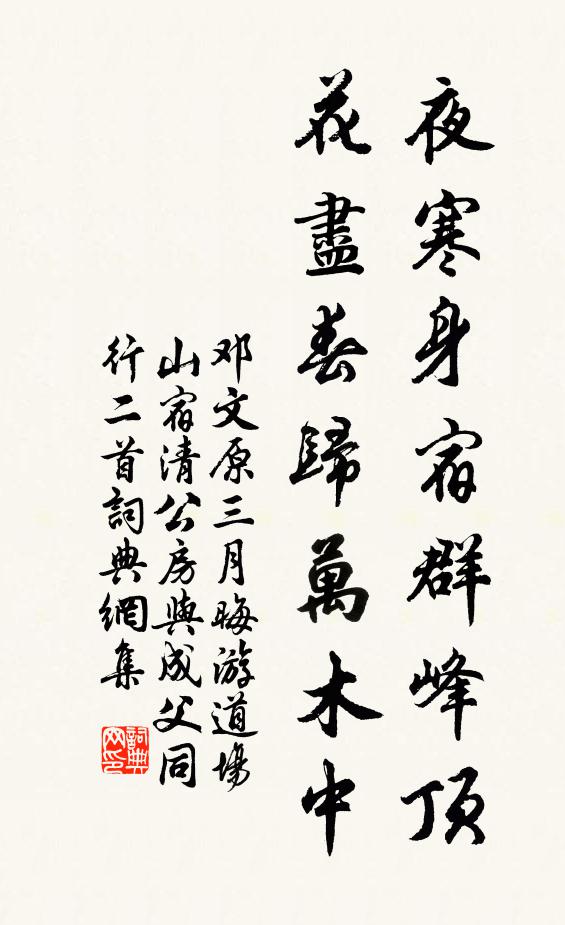 夜寒身宿群峰頂
花盡春歸萬木中
邓文原三月晦游道場
山宿清公房與成父同
行二首詞典網集
詞典网印